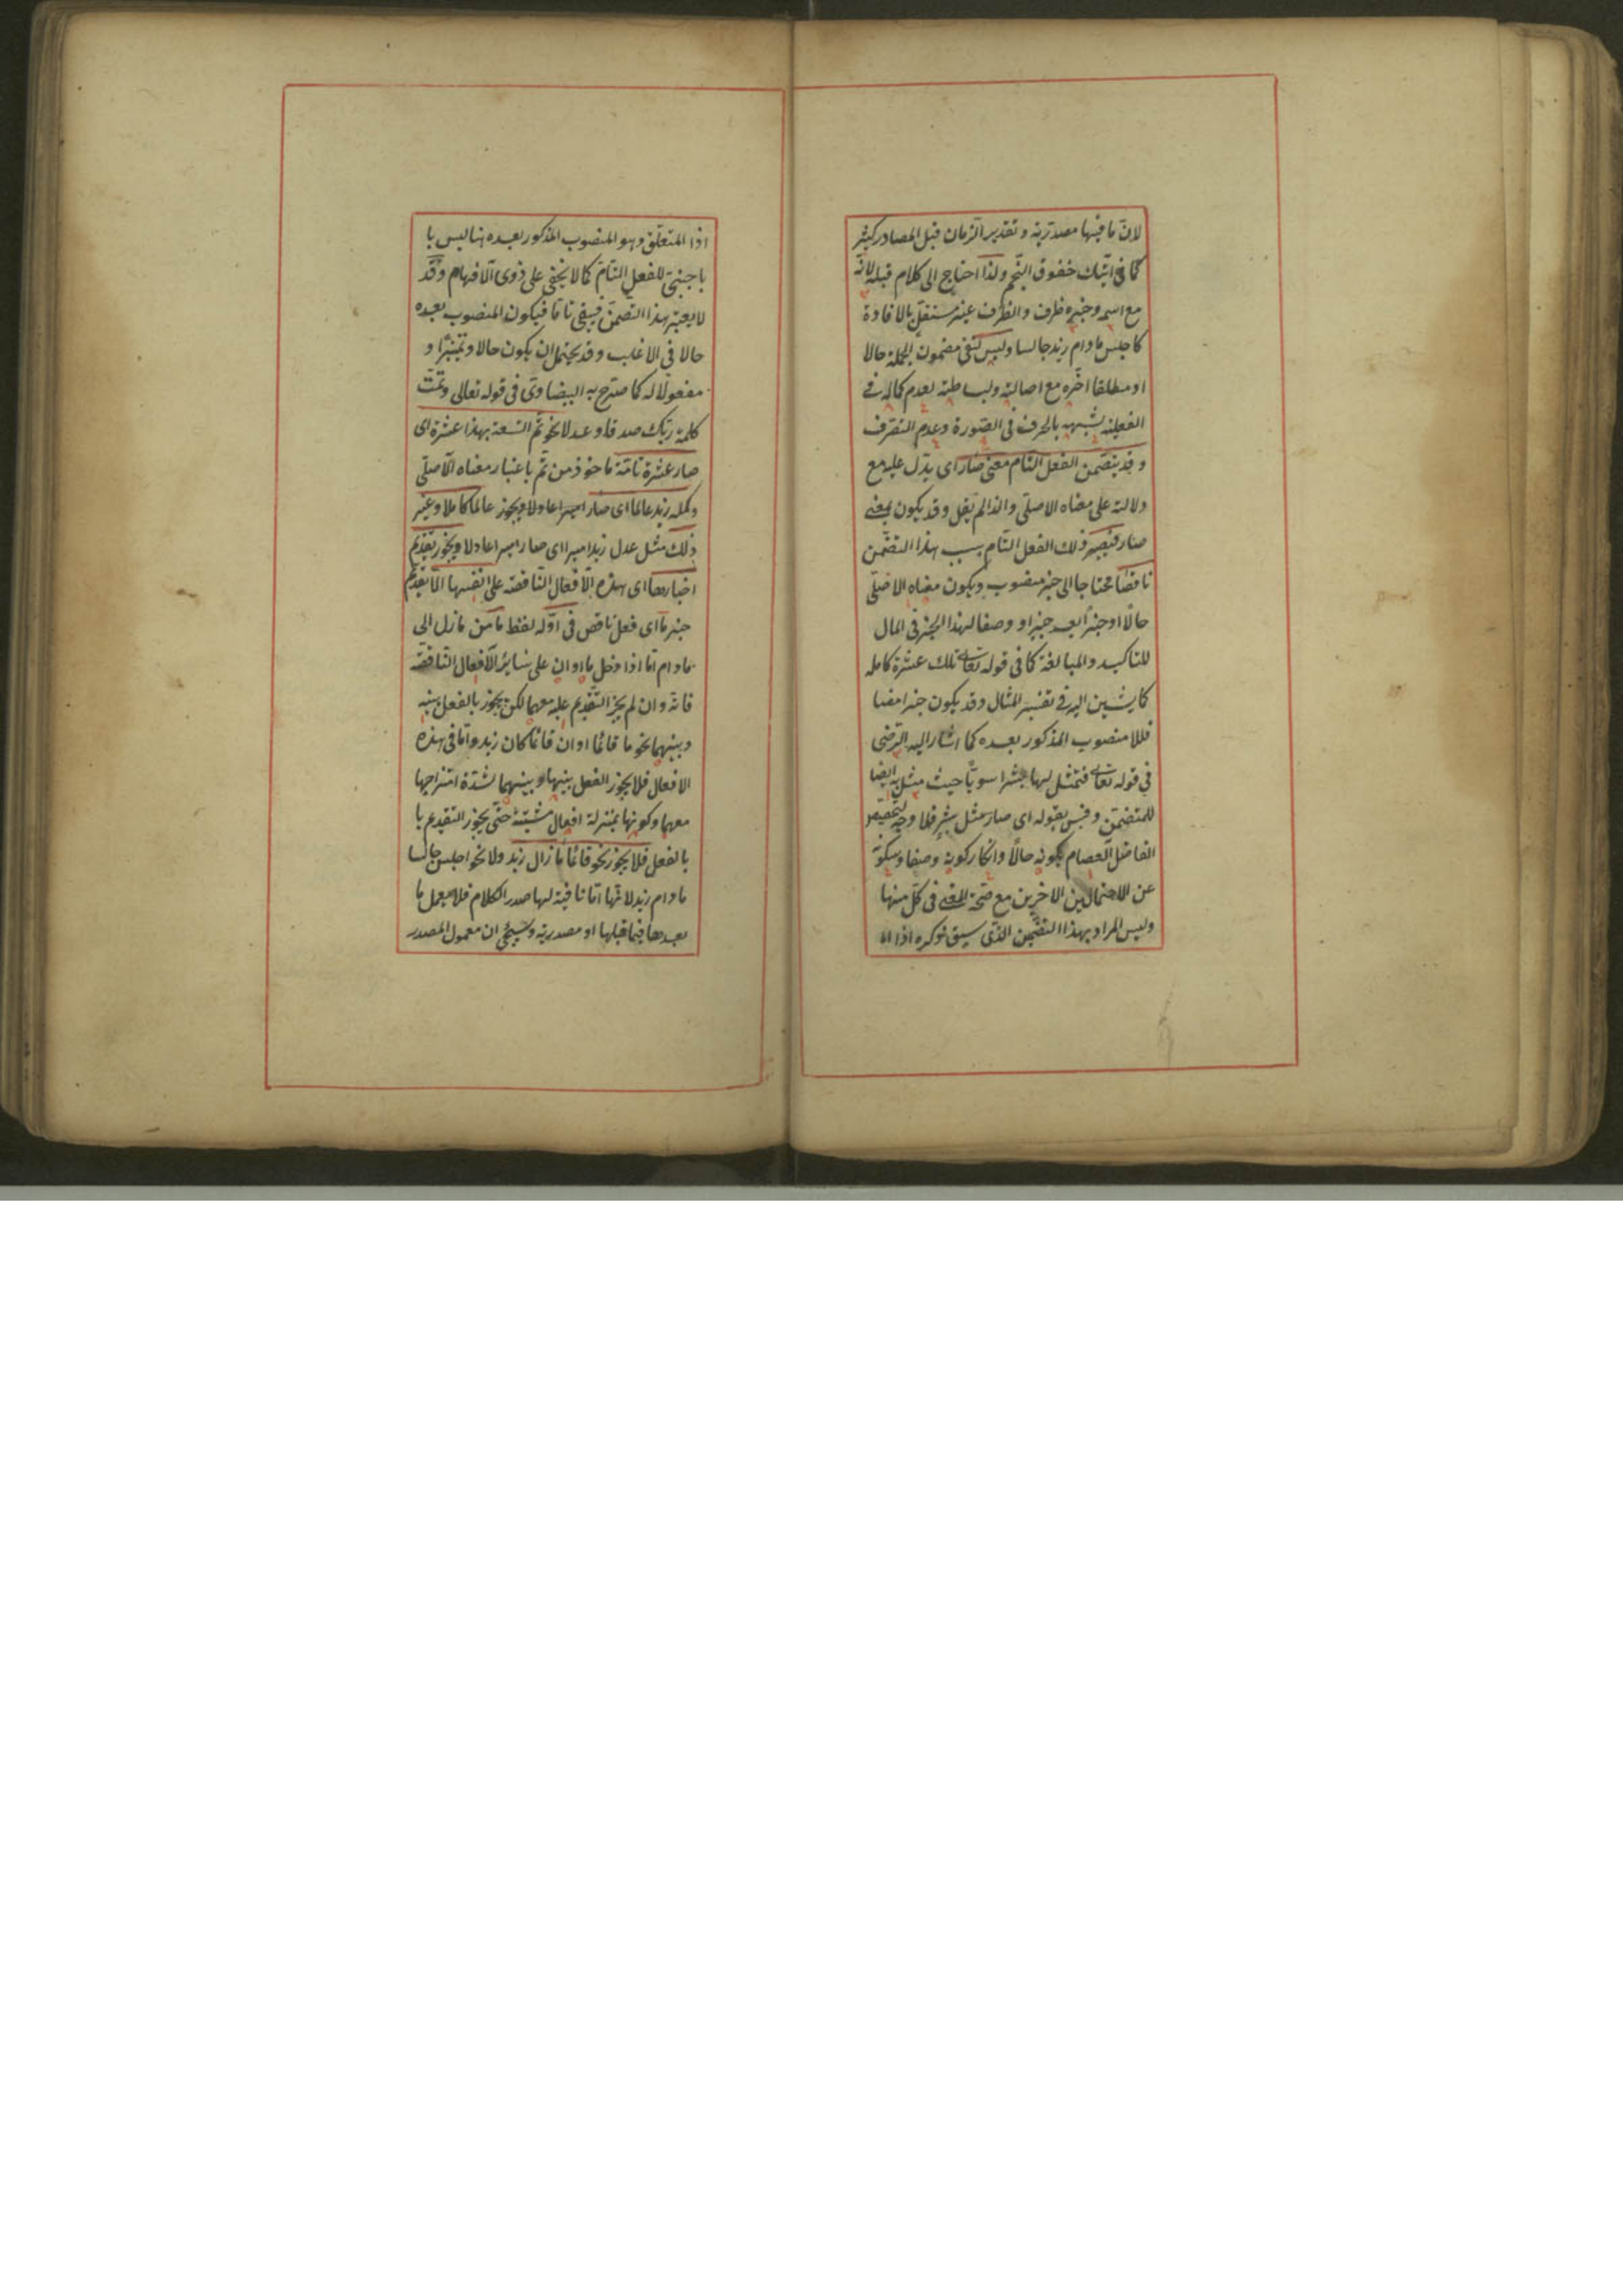 لانّ ما فيها مصدريّة و تقدير الزمان قبل المصادر كثير
كما فى آتيك خفوق النّجم ولذا احتاج الى كلام قبله لانّه
مع اسمه وخبره ظرف والظرف غير مستقلّ بالافادة
كاجلس مادام زيد جالسا وليس لنفى مضمون الجملة حالا
او مطلقا اخّره مع اصالته وبساطته لعدم كماله فى
الفعليّة لشبهه بالحرف فى الصّورة وعدم التصرف
وقد يتضمن الفعل التام معنى صار اى يدّل عليه مع
دلالته على معناه الاصلى والذا لم يقل وقد يكون بمعنى
صار فيصير ذلك الفعل التام بسبب هذا التضمّن
ناقصا محتاجا الى خبر منصوب ويكون معناه الاصلى
حالًا او خبرا بعد خبر او وصفا لهذا الخبر فى المال
للتاكيد والمبالغة كما فى قوله تعالى تلك عشرة كاملة
كما يشير اليه فى تفسير المثال وقد يكون خبرا مضا
فللا منصوب المذكور بعده كما اشار اليه الرضى
فى قوله تعالى فتمثل لها بشرا سويّا حيث مثل به ايضا
للمتضمّن وفسّر بقوله اى صار مثل بشر فلا وجه لتخصيص
الفاضل العصام بكونه حالًا وانكار كونه وصفا وسكوته
عن الاحتمالين الاخرين مع صحّة المعنى فى كلّ منها
وليس المراد بهذا التضمّن الذى سيق ذكره اذا اا
اذا المتعلّق وهو المنصوب المذكور بعده هنا ليس با
باجنبىّ للفعل التامّ كما لا يخفى على ذوى الافهام وقد
لا يعتبر هذا التضمّن فيبقى تامّا فيكون المنصوب بعده
حالا فى الاغلب وقد يحتمل ان يكون حالا وتمييزا و
مفعولا له كما صرّح به البيضاوى فى قوله تعالى وتمّت
كلمة ربّك صدقا وعدلا نحو تمّ التسعة بهذا عشرة اى
صار عشرة تامّة ماخوذ من تمّ باعتبار معناه الاصلى
وكمل زيد عالما اى صار اميرا عادلا ويجوز عالما كاملا وغير
ذلك مثل عدل زيد اميرا اى صار اميرا عادلا ويجوز تقديم
اخبارها اى هذه الافعال الناقصة على انفسها الّا تقديم
خبر ما اى فعل ناقص فى اوّله لفظ ما من مازال الى
مادام امّا اذا دخل ما او ان على سائر الافعال الناقصة
فانه وان لم يجز التقديم عليه معهما لكن يجوز بالفعل بينه
وبينهما نحو ما قائما او ان قائما كان زيد وامّا فى هذه
الافعال فلا يجوز الفعل بينها وبينهما لشدّة امتزاجها
معهما وكونها بمنزلة افعال مثبتة حتّى يجوز التقديم با
بالفعل فلا يجوز نحو قائما مازال زيد ولا نحو اجلس جالسا
مادام زيد لانّها امّا نافية لها صدر الكلام فلا يعمل ما
بعدها فيما قبلها او مصدرية وسيجئ ان معمول المصدر